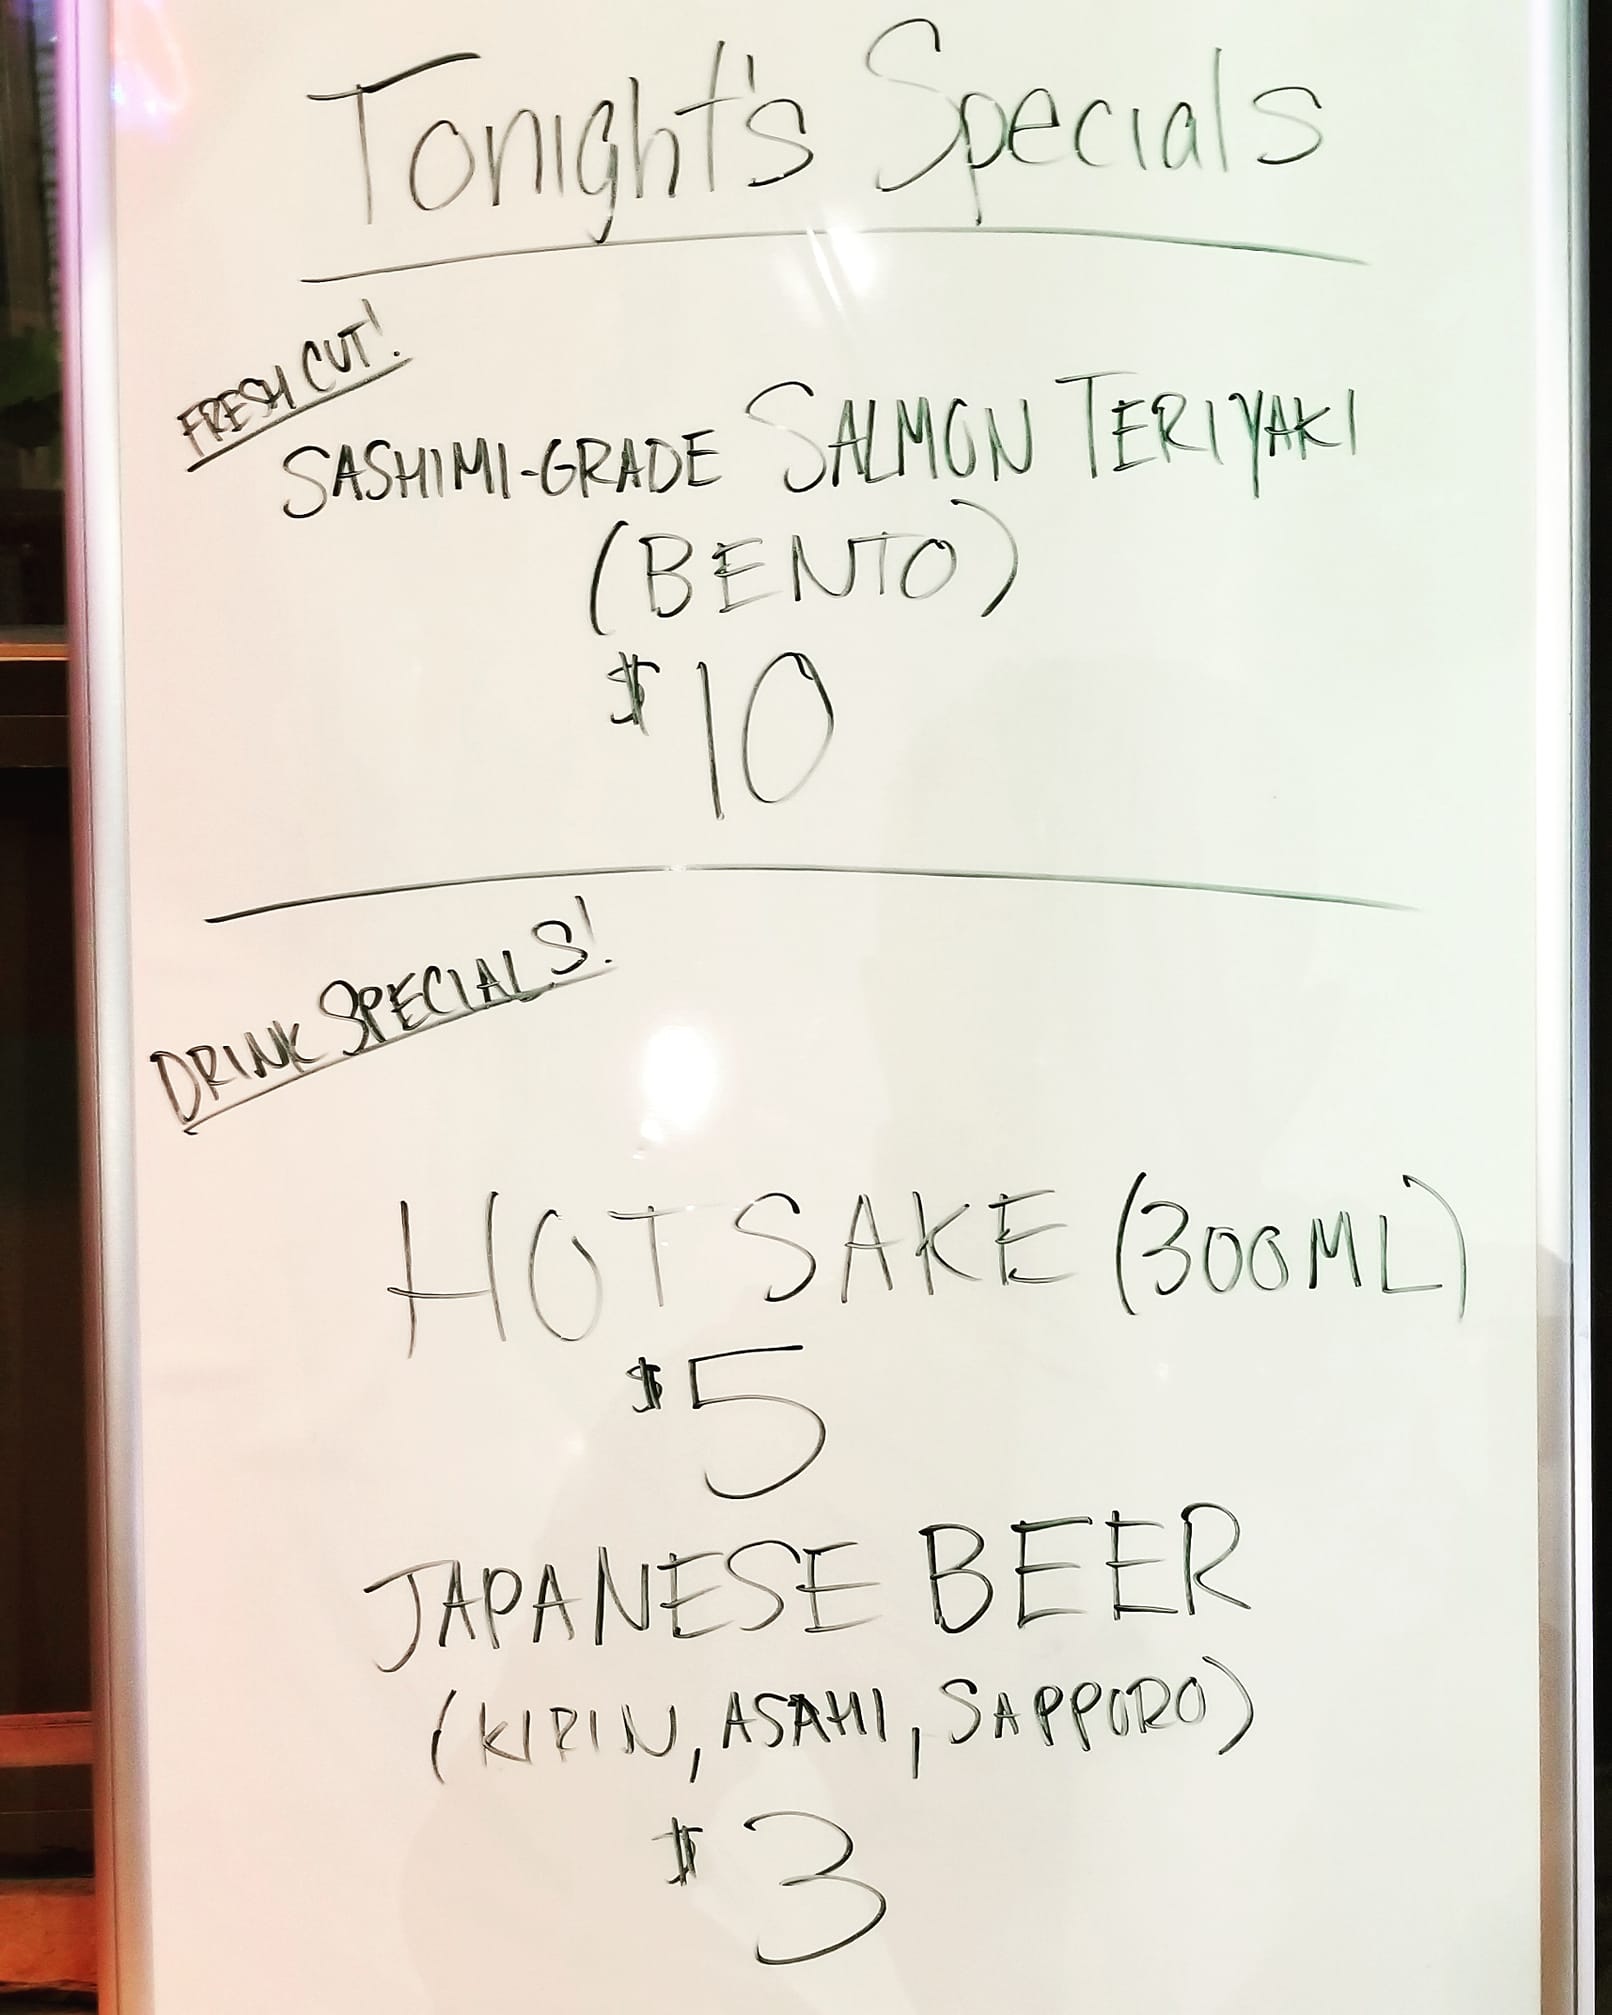 Tonight's Specials
FRESH CUT!
SASHIMI-GRADE SALMON TERIYAKI
(BENTO)
$10
DRINK SPECIALS!
HOT SAKE (300ML)
$5
JAPANESE BEER
(KIRIN, ASAHI, SAPPORO)
$3